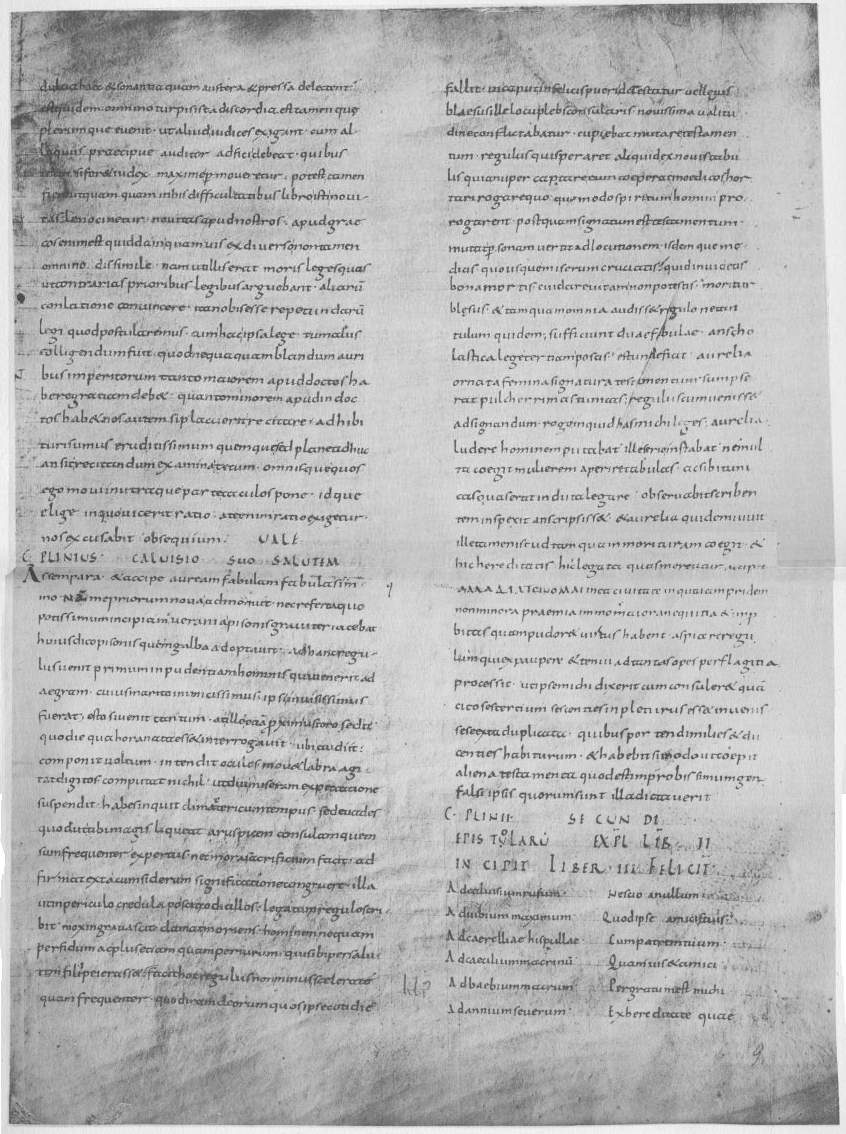 dulcia haec & sonantia quam austera & pressa delectent.
est quidem omnino turpis ista discordia. est tamen quę
plerumque euenit. ut aliud iudices exigant. cum al
praecipue auditor adfici debeat. quibus
si foret iudex maxime moueretur. potest tamen
fieri ut quamquam in his difficultatibus libro isti noui
tas lenocinetur. nouitas apud nostros. apud grae
cos enim est quiddam quamuis ex diuerso non tamen
omnino dissimile. nam ut illis erat moris leges quas
ut contrarias prioribus legibus arguebant. aliarū
conlatione conuincere. ita nobis esse repetundarū
legi quod postularemus. cum hac ipsa lege tum aliis
colligendum fuit. quod nequaquam blandum auri
bus imperitorum tanto maiorem apud doctos ha
bere gratiam deb&. quanto minorem apud indoc
tos hab& nos autem si placuerit recitare. adhibi
turi sumus eruditissimum quemque sed plane adhuc
an sit recitandum examina tecum. omnisque quos
ego moui in utraque parte calculos pone. idque
elige in quo uicerit ratio. a te enim ratio exigetur.
nos excusabit obsequium. UALE
C. PLINIUS. CALUISIO SUO SALUTEM
Assem para. & accipe auream fabulam fabulas im
mo. me priorum noua admonuit. nec refert a quo
potissimum incipiam uerania pisonis grauiter iacebat
huius dico pisonis quem galba adoptauit. ad hanc regu
lus uenit primum inpudentiam hominis qui uenerit ad
aegram. cuius marito inimicissimus. ipsi inuisissimus
fuerat. esto si uenit tantum. at ille etiā proximus toro sedit
quo die qua hora nata esset interrogauit. ubi audiit.
componit uoltum. intendit oculos mou& labra agi
tat digitos computat nichil. ut diu miseram expectatione
suspendit. habes inquit climactericum tempus sed euades
quod ut tibi magis liqueat aruspicem consulam quem
sum frequenter expertus nec mora sacrificium facit. ad
firmat exta cum siderum significatione congruere. illa
ut in periculo credula poscit codicillos. legatum regulo scri
bit mox ingrauescit. clamat moriens. hominem nequam
perfidum ac plus etiam quam periurum. qui sibi per salu
tem filii peierasset. facit hoc regulus non minus scelerate
quam frequenter. quod iram deorum quos ipse cotidie
fallit. in caput infelicis pueri detestatur uelleius
blaesus ille locuples consularis. nouissima ualitu
dine conflictabatur. cupiebat mutare testamen
tum. regulus qui speraret aliquid ex nouis tabu
lis quia nuper captare eum coeperat medicos hor
tari rogare quoquo modo spiritum homini pro
rogarent. postquam signatum est testamentum
mutat personam uertit adlocutionem isdemque me
dicis. quousque miserum cruciatis. quid inuidetis
bona morte. cui dare uitam non potestis. moritur
blęsus. & tamquam omnia audiss& regulo ne tan
tulum quidem. sufficiunt duae fabulae. an scho
lastica lege tertiam poscis. est unde fiat. aurelia
ornata femina signatura testamentum sumpse
rat pulcherrimas tunicas. regulus cum uenisset
ad signandum. rogo inquid has michi leges. aurelia
ludere hominem putabat. ille serio instabat. ne mul
ta coegit mulierem aperire tabulas. ac sibi tuni
cas quas erat induta legare. obseruabit scriben
tem inspexit an scripsiss&. & aurelia quidem uiuit
ille tamen istud tamquam morituram coegit. &
hic hereditates hic legata quasi mereatur. accipit
in ea ciuitate in qua iam pridem
non minora praemia immo maiora nequitia & inp
bitas quam pudor & uirtus habent. aspice regu
lum qui ex paupere & tenui ad tantas opes per flagitia
processit. ut ipse michi dixerit cum consuler& quā
cito sestertium sescenties inpleturus ess& inuenis
se se exta duplicata. quibus portendi milies & du
centies habiturum. & habebit si modo ut coepit
aliena testamenta quod est improbissimum gen
falsi ipsis quorum sunt illa dictauerit
C. PLINII. SECUNDI
EPISTOLARŪ EXPL LIB. II
INCIPIT LIBER. III FELICIT
Ad caluisium rufum. Nescio an ullum
Ad uibium maximum Quod ipse amicis tuis
Ad caerelliae hispullae Cum patrem tuum
Ad caecilium macrinū Quamuis & amici
Ad baebium macrum Pergratum est michi
Ad annium seuerum Ex hereditate quae